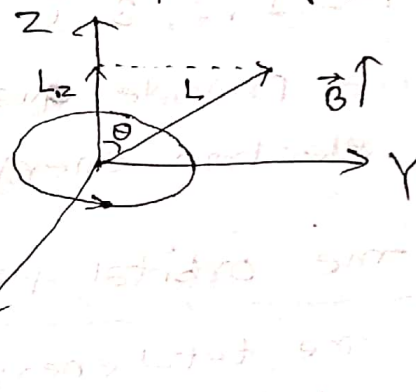 Z
L_z L B⃗
θ
Y